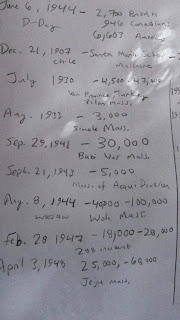 June 6, 1944 - 2,700 British
D-Day 946 Canadians
6,603 Americ
Dec. 21, 1907 - Santa Maria School
Chile Massacre
July 1930 - 4,500-47,000
Van Province, Turkey
Zilan mass.
Aug. 1933 - 3,000
Simele Mass.
Sep. 29, 1941 - 30,000
Babi Yar Mass.
Sept. 21, 1943 - 5,000
Mass. of Acqui Division
Aug. 8, 1944 - 40,000-100,000
Warsaw Wola Mass.
Feb. 28 1947 - 18,000-28,000
228 incident
April 3, 1948 25,000-60,000
Jeju Mass.